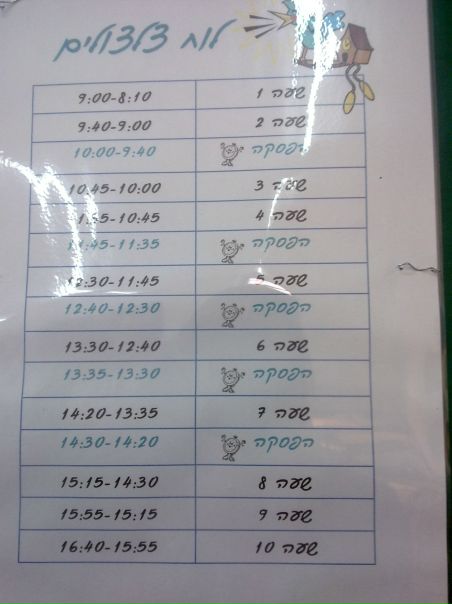 לוח צלצולים
שעה 1 9:00-8:10
שעה 2 9:40-9:00
הפסקה 10:00-9:40
שעה 3 10:45-10:00
שעה 4 11:35-10:45
הפסקה 11:45-11:35
שעה 5 12:30-11:45
הפסקה 12:40-12:30
שעה 6 13:30-12:40
הפסקה 13:35-13:30
שעה 7 14:20-13:35
הפסקה 14:30-14:20
שעה 8 15:15-14:30
שעה 9 15:55-15:15
שעה 10 16:40-15:55